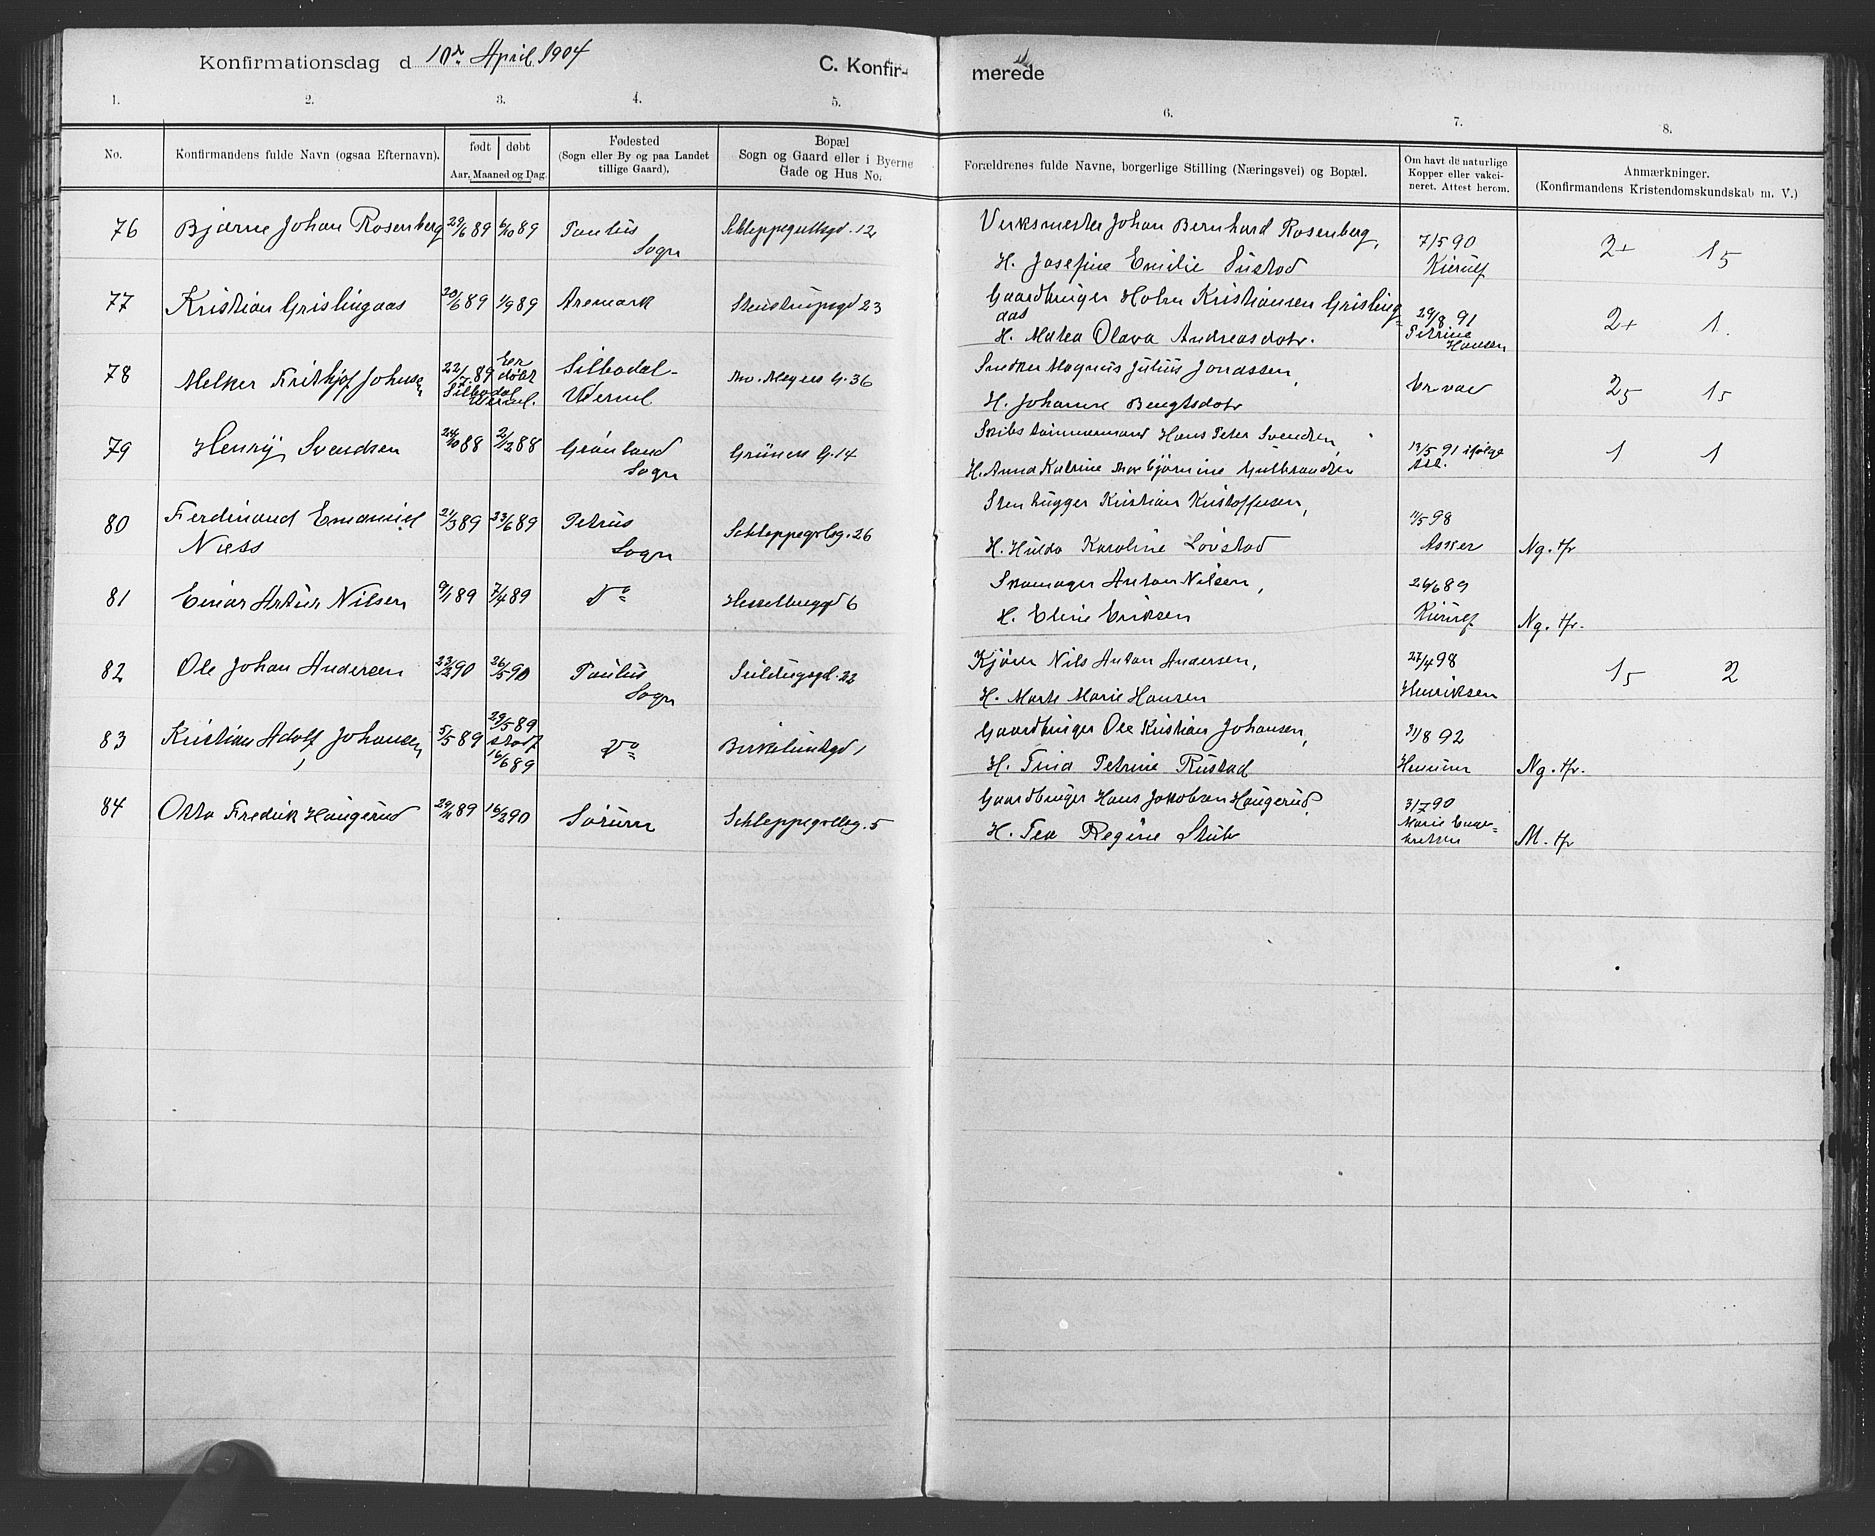 Konfirmationsdag d 10de April 1904 C. Konfir- merede
1. 2. 3. 4. 5. 6. 7. 8.
No. Konfirmandens fulde Navn (ogsaa Efternavn). født døbt Aar, Maaned og Dag. Fødested (Sogn eller By og paa Landet tillige Gaard). Bopæl Sogn og Gaard eller i Byerne Gade og Hus No. Forældrenes fulde Navne, borgerlige Stilling (Næringsvei) og Bopæl. Om havt de naturlige Kopper eller vakcineret. Attest herom. Anmærkninger. (Konfirmandens Kristendomskundskab m. V.)
76 Bjarne Johan Rosenberg 29/6 89 6/10 89 Paulus Sogn Schleppegrellsgd. 12 Verksmester Johan Bernhard Rosenberg,
H. Josefine Emilie Sustad 7/5 90 Kierulf 2+ 15
77 Kristian Grislingaas 20/6 89 1/9 89 Aremark Stenstrupsgd 23 Gaardbruger Holm Kristiansen Grislingaas
H. Matea Olava Andreasdotr. 29/8 91 Petrine Hansen 2+ 1.
78 Melker Frithjof Johnsen 22/7 89 Silbodal Werml. Er døbt Silbodal- Werml Thv. Meyers G. 36 Snedker Magnus Julius Jonassen,
H. Johanne Bengtsdotr Er vac 25 15
79 Henry Svendsen 24/10 88 2/12 88 Grønland Sogn Grüners G. 14 Skibstømmermand Hans Peter Svendsen,
H. Anna Katrine Thorbjørnine Gulbrandsen 13/5 91 ifølge Att. 1 1
80 Ferdinand Emanuel Næss 21/3 89 23/6 89 Petrus Sogn Schleppegrlsg. 26 Stenhugger Kristian Kristoffersen,
H. Hulda Karoline Løvstad 11/5 98 Asker Ng. tfr
81 Einar Artur Nilsen 9/1 89 7/4 89 Do Hesselbergsgd 6 Skomager Anton Nilsen,
H. Eline Eriksen 26/6 89 Kierulf Ng. tfr.
82 Ole Johan Andersen 23/2 90 26/5 90 Paulus Sogn Seildugsgd. 22 Kjører Nils Anton Andersen,
H. Marte Marie Hansen 27/4 98 Henriksen 15 2
83 Kristian Adolf Johansen 5/5 89 29/5 89 stadf 16/6 89 Do Birkelundsgd 1 Gaardbruger Ole Kristian Johansen,
H. Tina Petrine Rustad 31/8 92 Ng. tfr.
84 Otto Fredrik Haugerud 16/2 90 Sørum Schleppegrellsg. 5 Gaardbruger Hans Jakobsen Haugerud,
H. Tea Regine Stub 31/7 90 Marie Engebretsen M. tfr